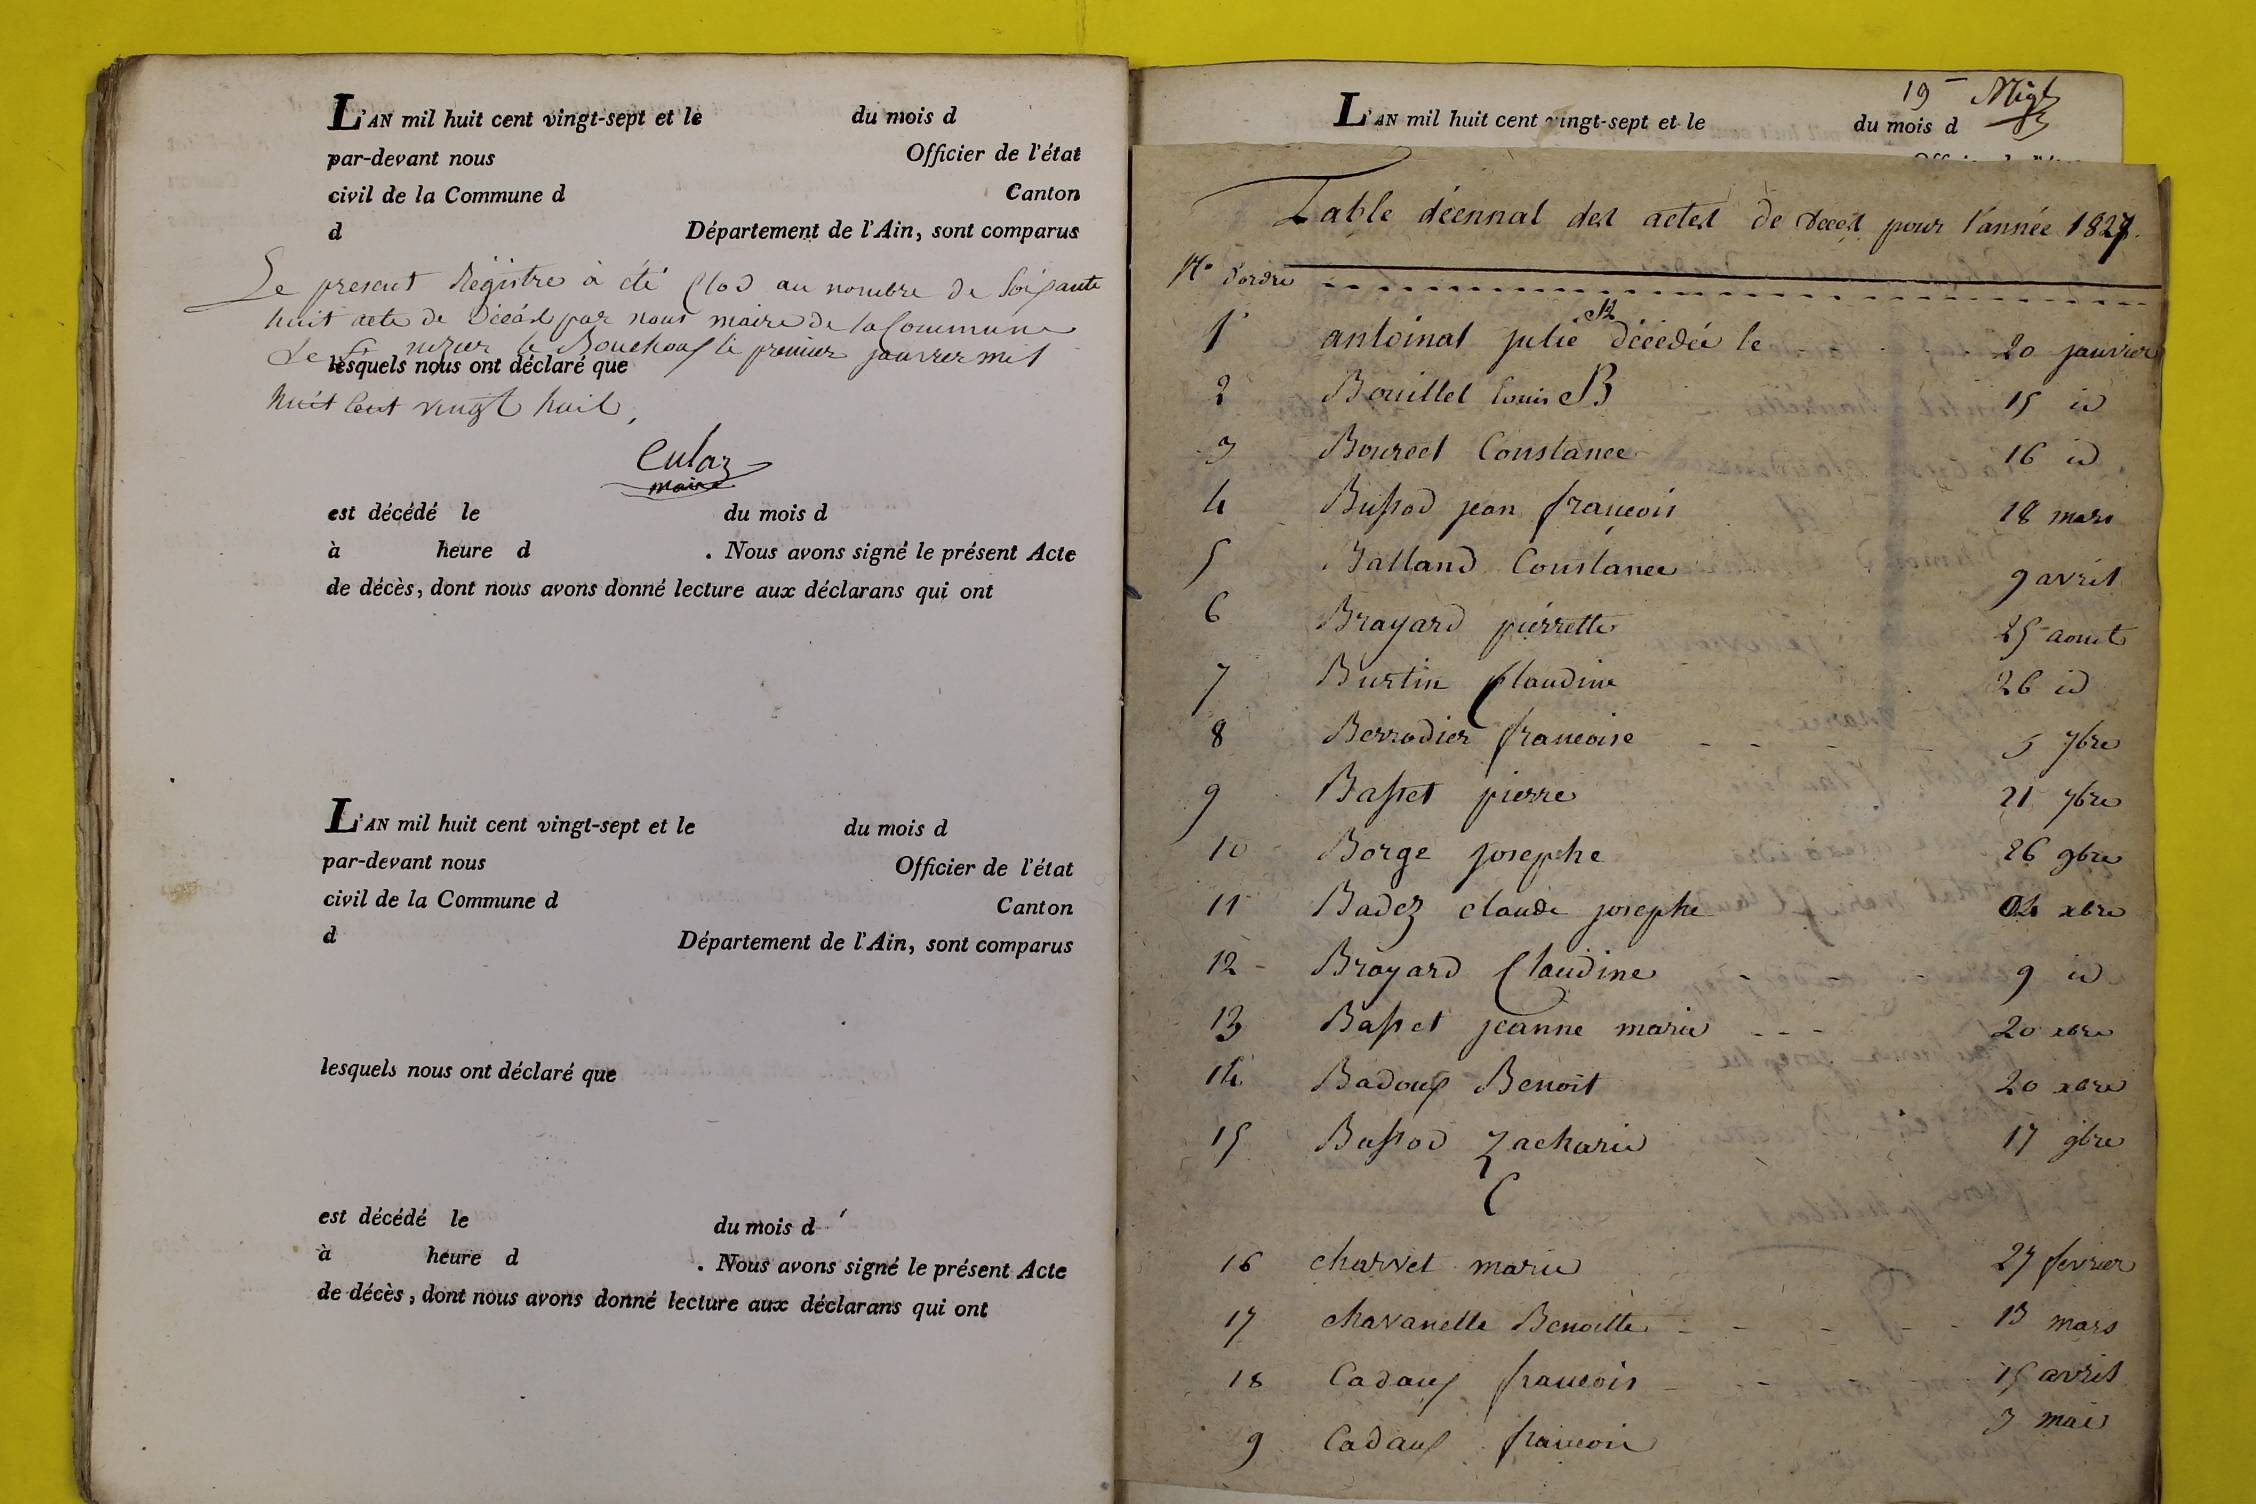 L'AN mil huit cent vingt-sept et le du mois d
par-devant nous Officier de l'état
civil de la Commune d Canton
d Département de l'Ain, sont comparus
Le present Régistre à été Clos au nombre de Soixante
huit acte de Décès par nous maire de la Commune
de St nizier le Bouchoux le premier janvier mil
lesquels nous ont déclaré que
huit Cent vingt huit,
Culaz
maire
est décédé le du mois d
à heure d . Nous avons signé le présent Acte
de décès, dont nous avons donné lecture aux déclarans qui ont
L'AN mil huit cent vingt-sept et le du mois d
par-devant nous Officier de l'état
civil de la Commune d Canton
d Département de l'Ain, sont comparus
lesquels nous ont déclaré que
est décédé le du mois d
à heure d . Nous avons signé le présent Acte
de décès, dont nous avons donné lecture aux déclarans qui ont
19
L'AN mil huit cent vingt-sept et le du mois d
Table décennal des actes de Décès pour l'année 1827.
No d'ordre
1 antoinat julie décédée le 20 janvier
2 Bouillet Louis B 15 id
3 Bourcet Constance 16 id
4 Bussod jean françois 18 mars
5 Balland Constance 9 avril
6 Brayard pierrette 25 aout
7 Burtin Claudine 26 id
8 Berrodier francoise 5 7bre
9 Basset pierre 21 7bre
10 Borge josephe 26 9bre
11 Badez claude josephe 04 xbre
12 Brayard Claudine 9 id
13 Basset jeanne marie 20 xbre
14 Badoux Benoit 20 xbre
15 Bussod Zacharie 17 9bre
C
16 charvet marie 27 fevrier
17 chavanelle Benoitte 13 mars
18 Cadoux francois 15 avril
9 Cadoux francois 3 mai